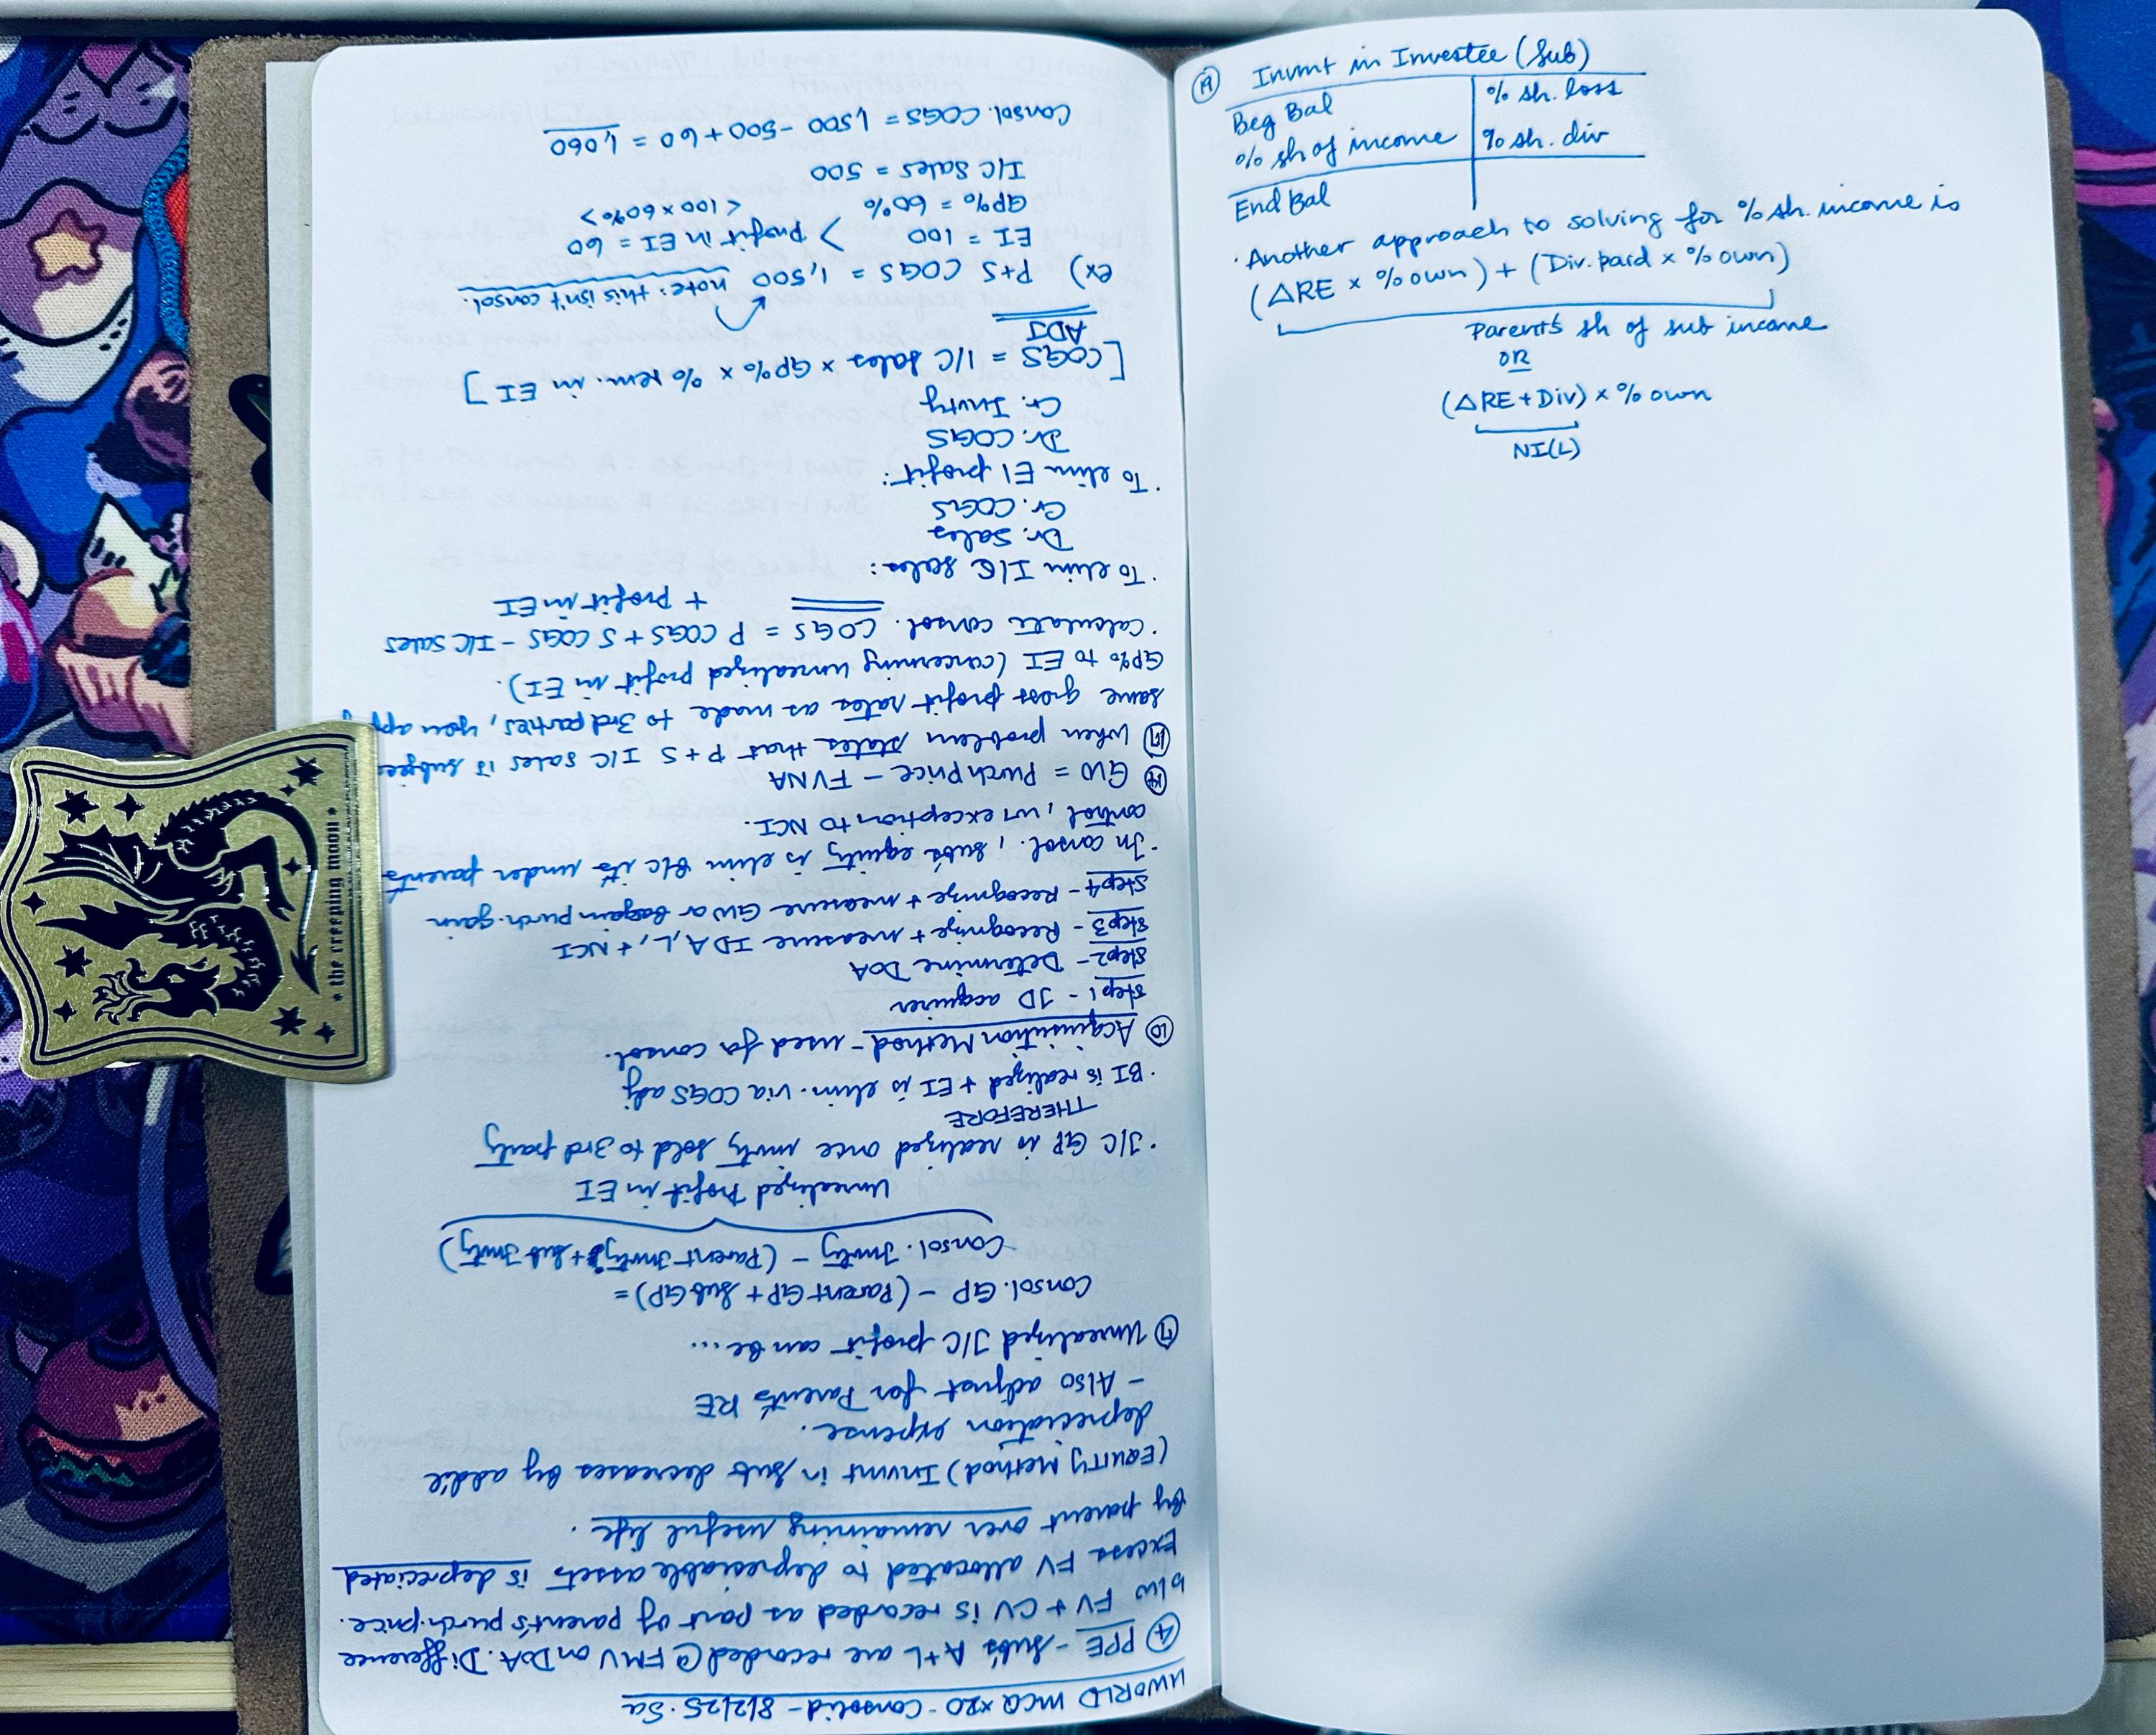 UWORLD MCQ x20 - Consolid - 8/2/25 · Sa
④ PPE - Sub's A+L are recorded @ FMV on DOA. Difference
b/w FV + CV is recorded as part of parent's purch. price.
Excess FV allocated to depreciable assets is depreciated
by parent over remaining useful life.
(EQUITY Method) Invmt in Sub decreases by add'l
depreciation expense.
- Also adjust for Parent's RE
⑦ Unrealized I/C profit can be...
Consol. GP - (Parent GP + Sub GP) =
Consol. Invty - (Parent Invty + Sub Invty)
Unrealized Profit in EI
· I/C GP is realized once invty sold to 3rd party
THEREFORE
· BI is realized + EI is elim. via COGS adj
⑩ Acquisition Method - used for consol.
Step 1 - ID acquirer
Step 2 - Determine DOA
Step 3 - Recognize + measure IDA, L, + NCI
Step 4 - Recognize + measure GW or Bargain purch. gain
· In consol., sub's equity is elim b/c it's under parent's
control, w/ exception to NCI.
⑭ GW = Purch Price - FVNA
⑰ When problem states that P + S I/C sales is subjec
same gross profit rates as made to 3rd parties, you app
GP% to EI (concerning unrealized profit in EI).
· Calculate consol. COGS = P COGS + S COGS - I/C sales
+ Profit in EI
· To elim I/C sales:
Dr. Sales
Cr. COGS
· To elim EI profit:
Dr. COGS
Cr. Invty
[COGS = I/C Sales × GP% × % rem. in EI]
ADJ
ex) P+S COGS = 1,500 note: this isn't consol.
EI = 100 > Profit in EI = 60
GP% = 60% <100 × 60%>
I/C Sales = 500
Consol. COGS = 1,500 - 500 + 60 = 1,060
⑲ Invmt in Investee (Sub)
Beg Bal % sh. loss
% sh of income % sh. div
End Bal
· Another approach to solving for % sh. income is
(△RE × % own) + (Div. paid × % own)
Parent's sh of sub income
OR
(△RE + Div) × % own
NI(L)
• the creeping moon •